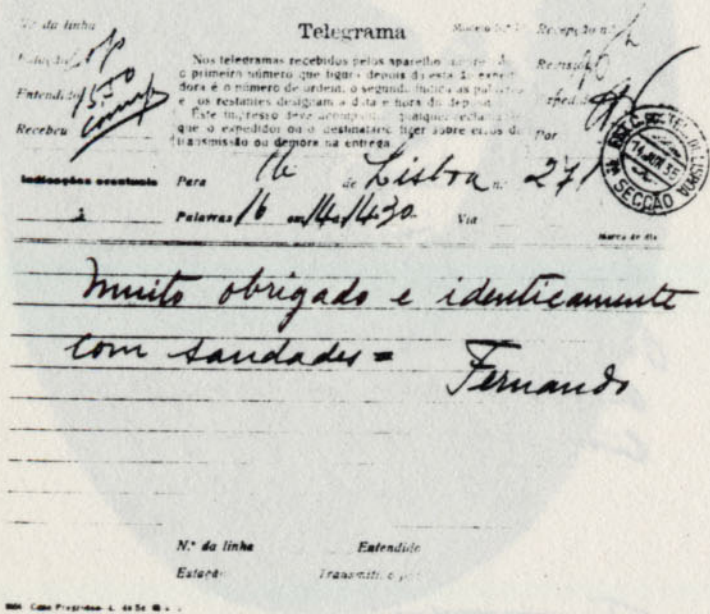 Nº da linha
Telegrama
Recepção nº
Nos telegramas recebidos pelos aparelhos
o primeiro número que figura depois da estação expedi-
dora é o número de ordem, o segundo indica as palavras
e os restantes designam a data e hora do deposito
Este impresso deve acompanhar qualquer reclamação
que o expedidor ou o destinatario fizer sobre erros de
transmissão ou demora na entrega
Estação
Entendido 15-50
Recebeu
Revisão
Expedido
Por
14 JUN 35
SECÇÃO
Indicações eventuais
Para de Lisboa n. 271
Palavras 16 em 14 às 1430 Via
Marca de dia
Muito obrigado e identicamente
com saudades = Fernando
N.º da linha Entendido
Estação Transmitido por